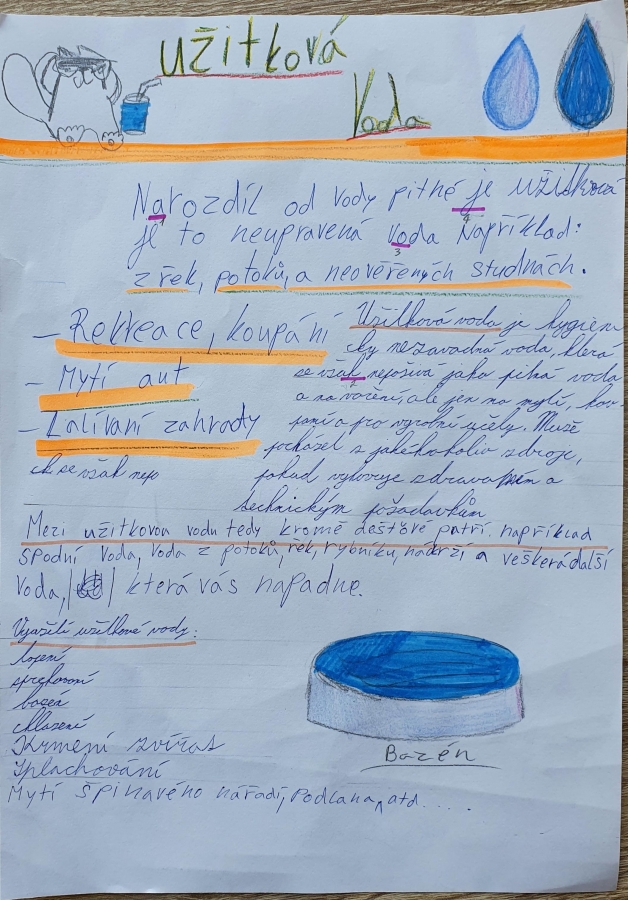 užitková
Voda
Narozdíl od vody pitné je užitková
je to neupravená voda Například:
z řek, potoků, a neověřených studnách.
– Rekreace, koupání
– Mytí aut
– Zalívaní zahrady
Užitková voda je hygien
icky nezavadná voda, která
se však nepožívá jako pitná voda
a na vaření, ale jen na mytí, kou
paní a pro výrobní účely. Muže
pocházet z jakéhokoliv zdroje,
pokud vyhovuje zdravotním a
technickým požadavkům
ch se však nepo
Mezi užitkovou vodu tedy kromě dešťové patří. například
spodní voda, voda z potoků, řek, rybníku, nádrží a veškerá další
voda, která vás napadne.
Využití užitkové vody:
topení
sprchovaní
bazén
chlazení
Krmení zvířat
Splachování
Mytí špinavého nářadí, podlaha, atd.....
Bazén